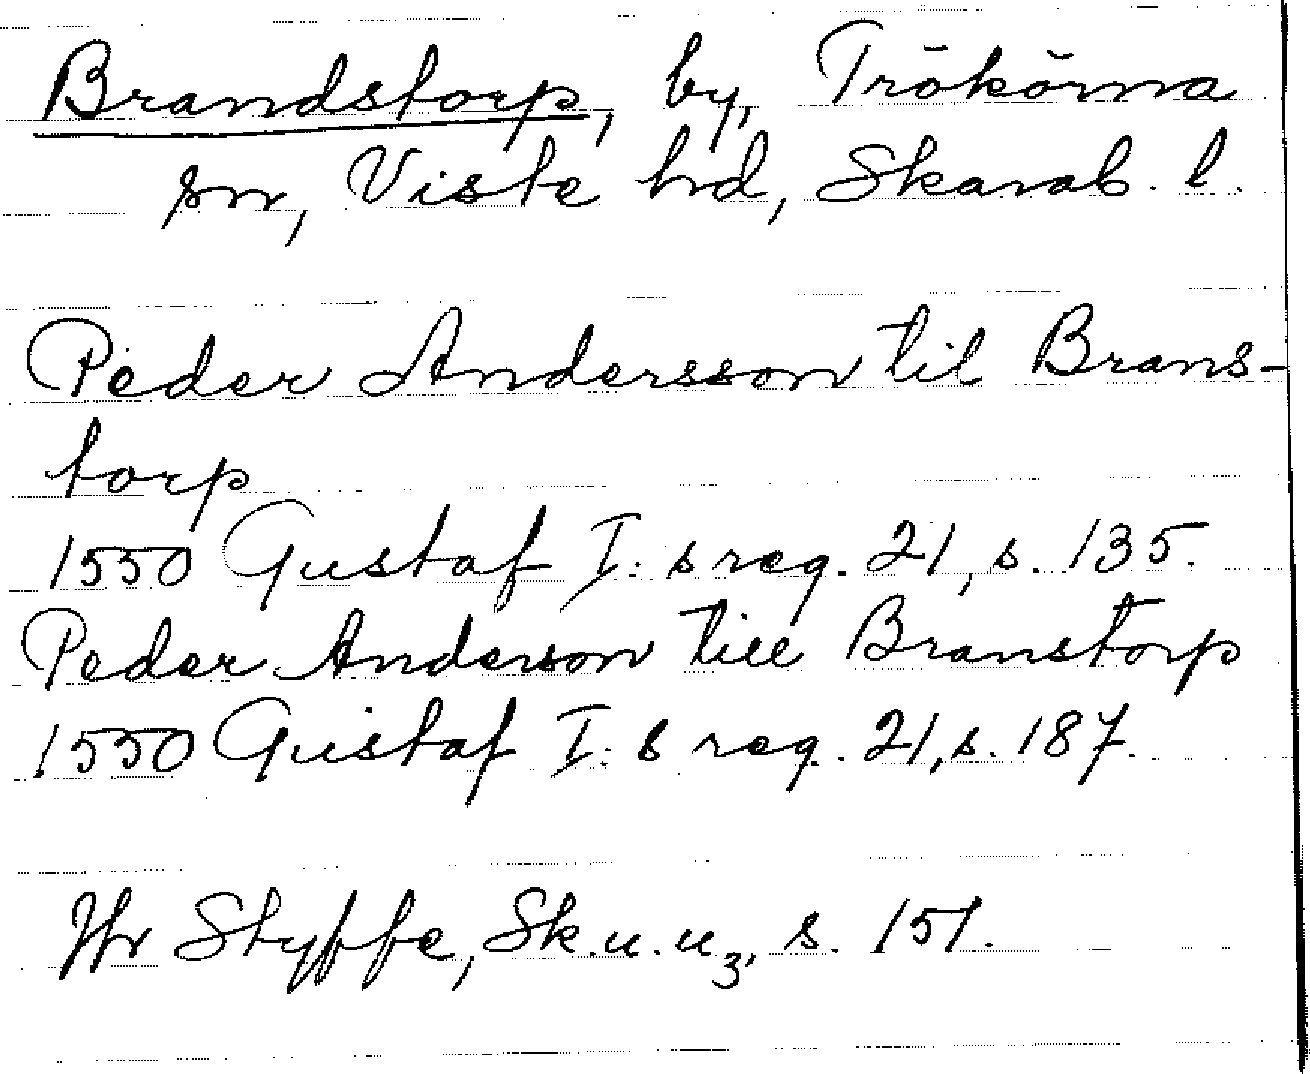 Brandstorp, by, Trökörna
sn, Viste hd, Skarab. l.
Peder Andersson til Brans-
torp
1550 Gustaf I: s reg. 21, s. 135.
Peder Anderson till Branstorp
1550 Gustaf I: s reg. 21, s. 187.
Jfr Styffe, Sk.u.u₃, s. 151.